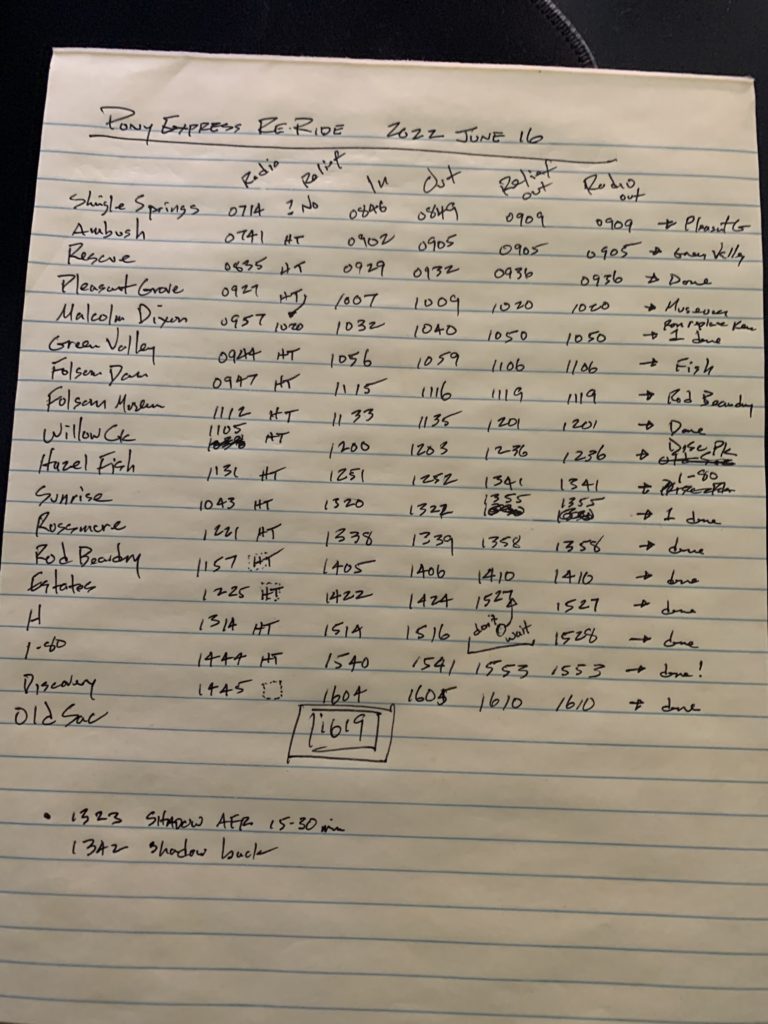 PONY EXPRESS RE-RIDE 2022 JUNE 16
Radio Relief In Out Relief out Radio out
Shingle Springs 0714 ? No 0846 0849 0909 0909 → Pleasant G
Ambush 0741 HT 0902 0905 0905 0905 → Green Valley
Rescue 0835 HT 0929 0932 0936 0936 → Done
Pleasant Grove 0927 HT 1007 1009 1020 1020 → Museum
Malcolm Dixon 0957 1020 1032 1040 1050 1050 → 1 done
Green Valley 0944 HT 1056 1059 1106 1106 → Fish
Folsom Dam 0947 HT 1115 1116 1119 1119 → Rod Beaudry
Folsom Museum 1112 HT 1133 1135 1201 1201 → Done
Willow Ck 1105 HT 1200 1203 1236 1236 → Disc. Pk
Hazel Fish 1131 HT 1251 1252 1341 1341 → 1-80
Sunrise 1043 HT 1320 1322 1355 1355 → 1 done
Rossmore 1221 HT 1338 1339 1358 1358 → done
Rod Beaudry 1157 HT 1405 1406 1410 1410 → done
Estates 1225 HT 1422 1424 1527 1527 → done
H 1314 HT 1514 1516 don't wait 1528 → done
1-80 1444 HT 1540 1541 1553 1553 → done!
Discovery 1445 1604 1605 1610 1610 → done
Old Sac 1619
• 1323 SHADOW AFR 15-30 min
1342 Shadow back